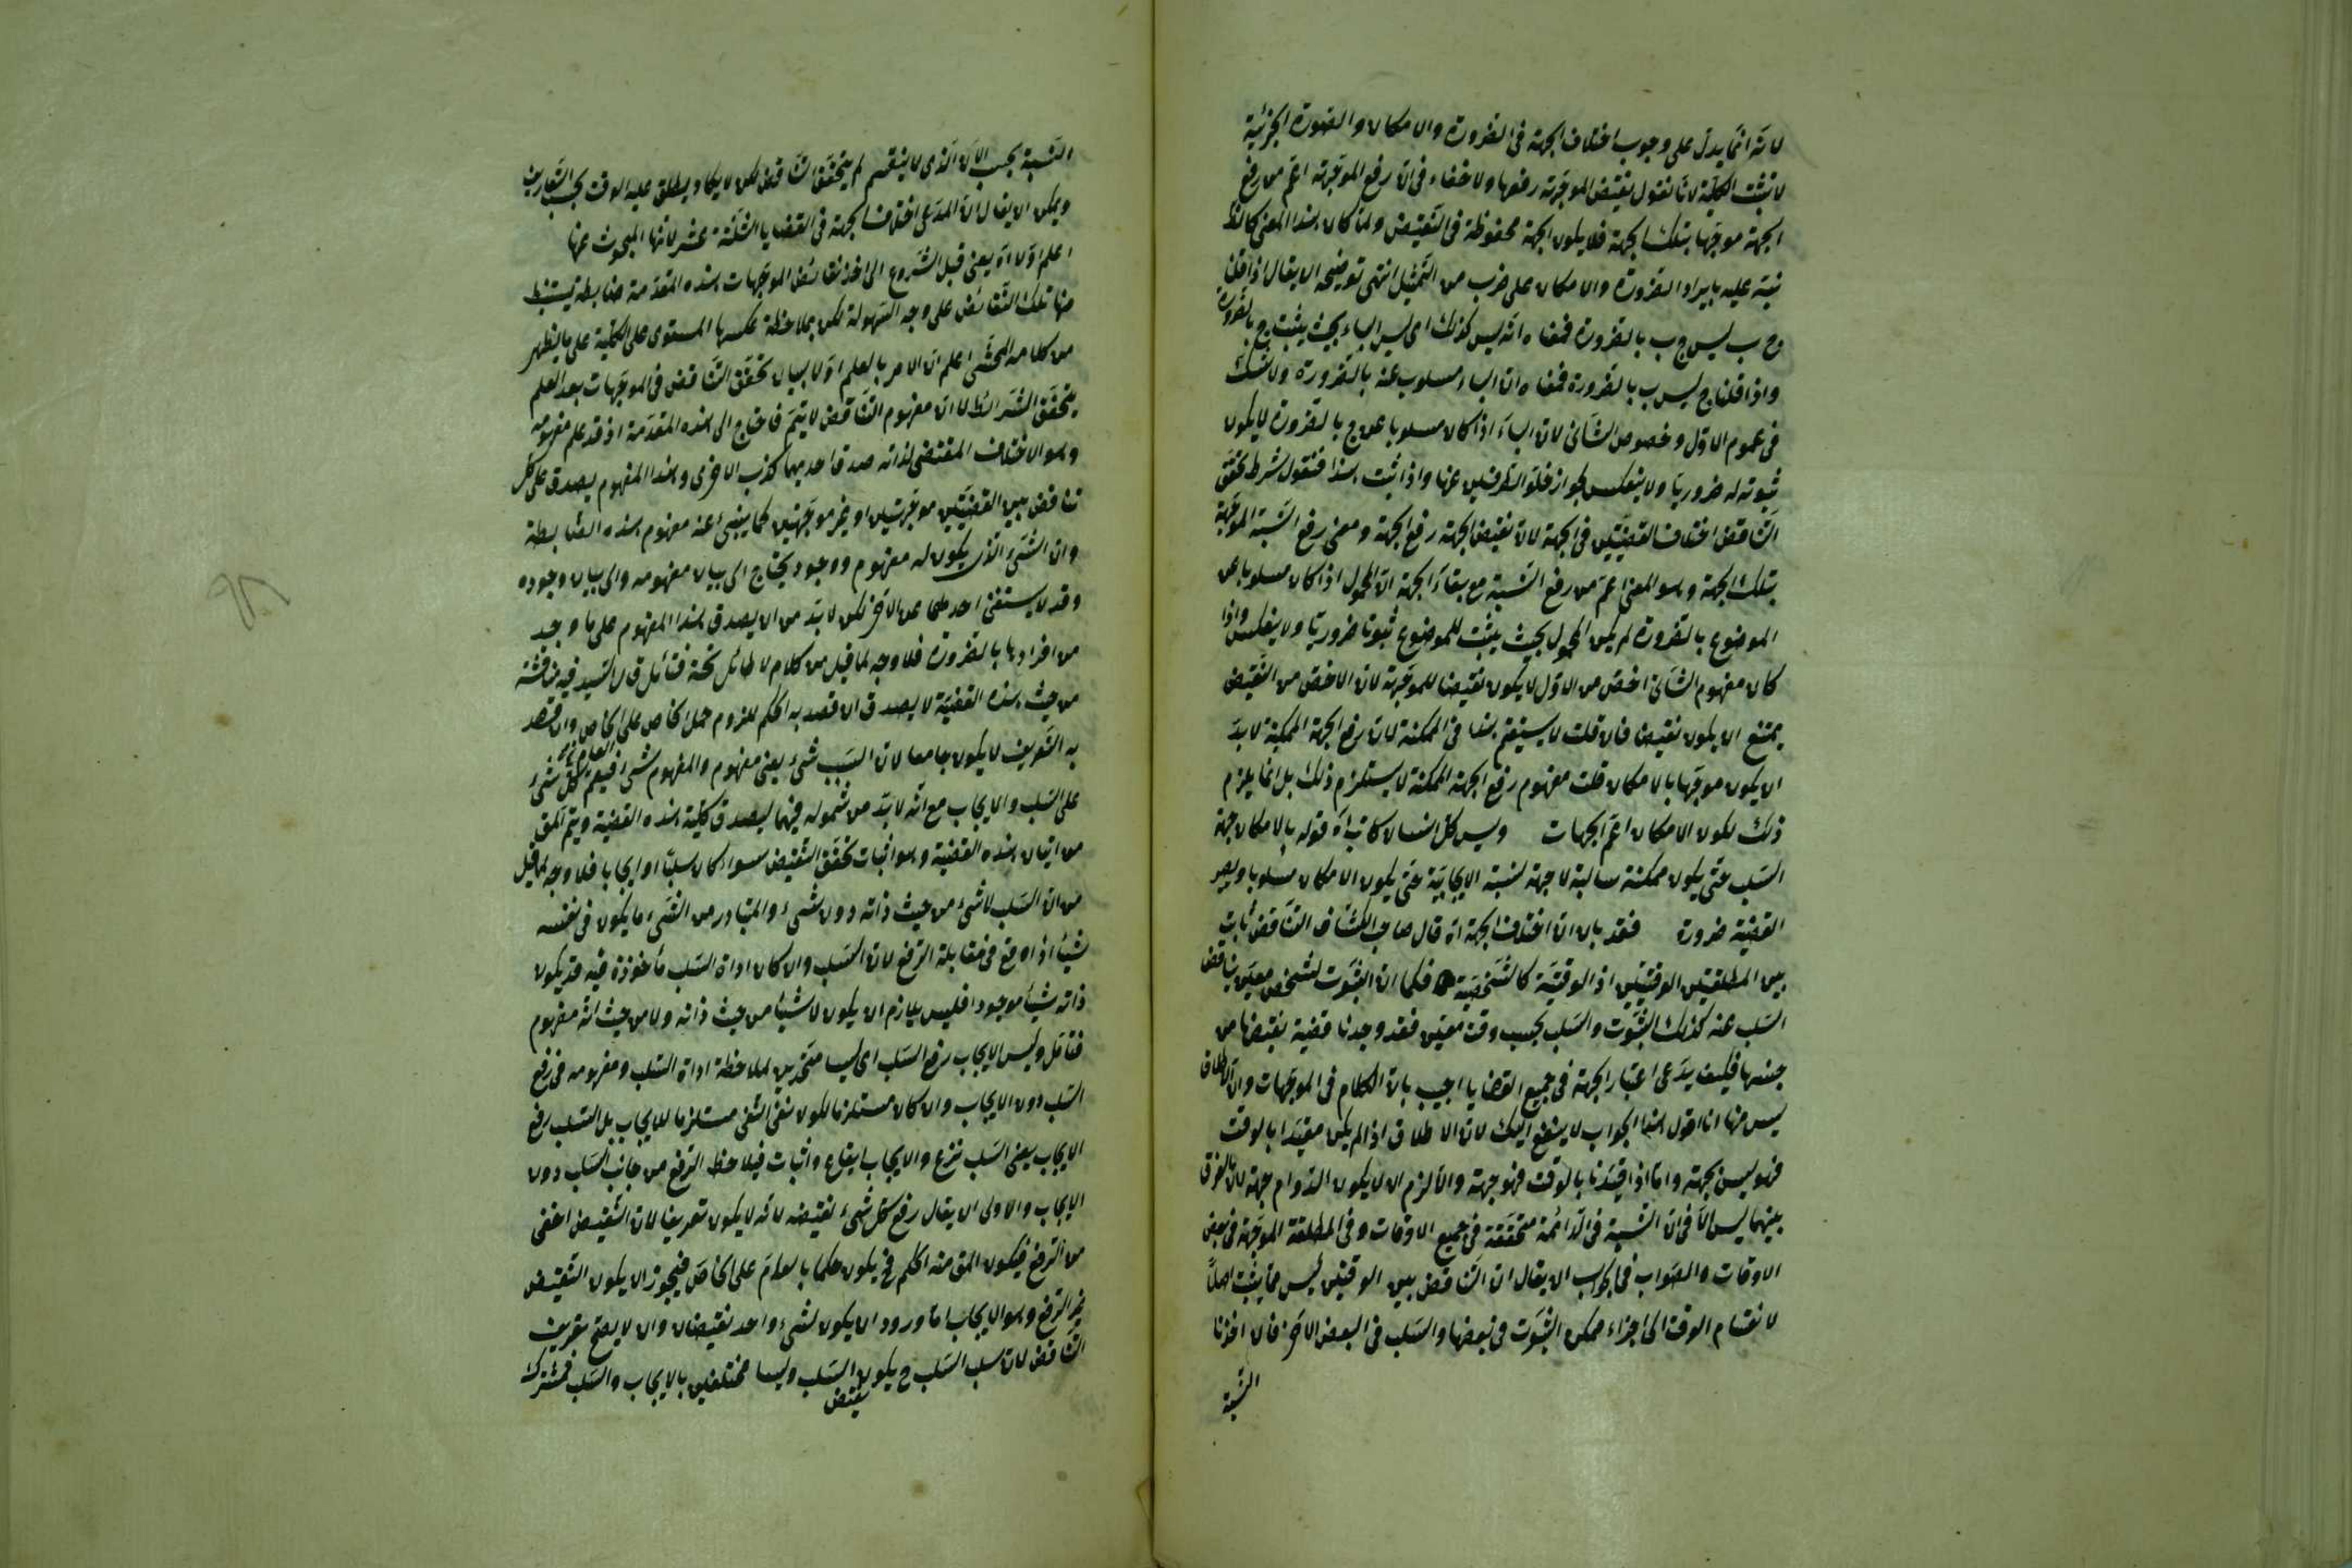 لانه انما يدل على وجوب اختلاف الجهة فى الضرورة والامكان والصورة الجزئية
لا تثبت الكلية لانا نقول نقيض الموجهة رفعها ولا خفاء فى ان رفع الموجهة اعم من رفع
الجهة موجها بتلك الجهة فلا يكون الجهة محفوظة فى النقيض ولما كان هذا المعنى كالظ
نبه عليه بايراد الضرورة والامكان على ضرب من التمثيل انتهى توضيحه ان يقال اذا قلنا
ج ب ليس ج ب بالضرورة فمعناه انه ليس كذلك اى ليس الباء بحيث يثبت ج بالضرورة
واذا قلنا ج ليس ب بالضرورة فمعناه ان الباء مسلوب عنه بالضرورة ولا شك
فى عموم الاول وخصوص الثانى لان الباء اذا كان مسلوبا عن ج بالضرورة لا يكون
ثبوته له ضروريا ولا ينعكس لجواز خلو الطرفين عنها واذا ثبت هذا فنقول شرط تحقق
التناقض اختلاف القضيتين فى الجهة لان نقيض الجهة رفع الجهة ومعنى رفع النسبة الموجهة
بتلك الجهة وهو المعنى اعم من رفع النسبة مع بقاء الجهة لان المحمول اذا كان مسلوبا عن
الموضوع بالضرورة لم يكن المحمول بحيث يثبت للموضوع ثبوتا ضروريا ولا ينعكس واذا
كان مفهوم الثانى اخص من الاول لا يكون نقيضا للموجهة لان الاخص من النقيض
يمتنع ان يكون نقيضا فان قلت لا يستقيم هذا فى الممكنة لان رفع الجهة الممكنة لا بد
ان يكون موجها بالامكان قلت مفهوم رفع الجهة الممكنة لا يستلزم ذلك بل انما يلزم
ذلك لكون الامكان اعم الجهات وليس كل انسان كاتبا اه قوله بالامكان جهة
السلب حتى يكون ممكنة سالبة لا جهة لنسبة الايجابية حتى يكون الامكان مسلوبا ويصير
القضية ضرورة فقد بان ان اختلاف الجهة اه قال صاحب الكشاف التناقض ثابت
بين المطلقتين الوقتيتين اذ الوقتية كالشخصية فكما ان الثبوت لشخص معين يناقض
السلب عنه كذلك الثبوت والسلب بحسب وقت معين فقد وجدنا قضية نقيضها من
جنسها فكيف يدعى اعتبار الجهة فى جميع القضايا اجيب بان الكلام فى الموجهات والاطلاق
ليس منها انا اقول هذا الجواب لا يشفع اليك لان الاطلاق اذا لم يكن مقيدا بالوقت
فهو ليس بجهة واما اذا قيدنا بالوقت فهو جهة والا لزم ان لا يكون الدوام جهة لان الفرق
بينهما ليس الا فى ان النسبة فى الدائمة متحققة فى جميع الاوقات وفى المطلقة الموجهة فى بعض
الاوقات والصواب فى الجواب ان يقال ان التناقض بين الوقتيتين ليس مما يثبت اصلا
لانقسام الوقت الى اجزاء ممكن الثبوت فى بعضها والسلب فى البعض الاخر فان اخذنا
النسبة
النسبة بحسب الان الذى لا ينقسم لم يتحقق التناقض لكن لا يكاد يطلق عليه الوقت بحسب التعاريف
ويمكن ان يقال ان المدعى اختلاف الجهة فى القضايا الثلثة عشر لانها المبحوث عنها
اعلم اولا اه يعنى قبل الشروع الى اخذ نقائض الموجهات هذه المقدمة ضابطة يستنبط
منها تلك النقائض على وجه السهولة لكن بملاحظة عكسها المستوى على الكلية على ما يظهر
من كلامه المحشى اعلم ان الامر بالعلم اولا لبيان تحقق التناقض فى الموجهات بعد العلم
بتحقق الشرائط لان مفهوم التناقض لا يتم فاحتاج الى هذه المقدمة اذ قد علم مفهومه
وهو الاختلاف المقتضى لذاته صدق احديهما كذب الاخرى وهذا المفهوم يصدق على كل
تناقض بين القضيتين موجهتين او غير موجهتين كما ينبئ عنه مفهوم هذه الضابطة
وان الشئ الذى يكون له مفهوم ووجود يحتاج الى بيان مفهومه والى بيان وجوده
وقد لا يستغنى احدهما عن الاخر لكن لا بد من ان يصدق هذا المفهوم على ما وجد
من افرادها بالضرورة فلا وجه لما قيل من كلام لا طائل تحته فتأمل قال السيد فيه مناقشة
من حيث هذه القضية لا يصدق ان قصد به الحكم للزوم حمل الخاص على الخاص وان قصد
به التعريف لا يكون جامعا لان السلب شئ يعنى مفهوم والمفهوم شئ فيعم كل شئ
على السلب والايجاب مع انه لا بد من شموله فيهما ليصدق كلية هذه القضية ويتم المق
من اتيان هذه القضية وهو اثبات تحقق النقيض سواء كان سلبا او ايجابا فلا وجه لما قيل
من ان السلب لا شئ من حيث ذاته دون شئ والمتبادر من الشئ ما يكون فى نفسه
شيأ اذا وقع فى مقابلة الرفع لان السلب وان كان اداة السلب مأخوذة فيه قد يكون
ذاته شيأ موجودا فليس يلازم ان يكون لا شيأ من حيث ذاته ولا من حيث انه مفهوم
فتأمل وليس الايجاب رفع السلب اى ليسا متحدين لملاحظة اداة السلب ومفهومه فى رفع
السلب دون الايجاب وان كان مستلزما لكون نفى النفى مستلزما للايجاب بل السلب رفع
الايجاب يعنى السلب نزع والايجاب ايقاع واثبات فيلاحظ الرفع من جانب السلب دون
الايجاب والاولى ان يقال رفع كل شئ نقيضه لانه لا يكون تعريفا لان النقيض اخفى
من الرفع فيكون المق منه الحكم فح يكون حكما بالعام على الخاص فيجوز ان يكون النقيض
غير الرفع وهو الايجاب اما ورود ان يكون لشئ واحد نقيضان وان لا يصح تعريف
التناقض لان سلب السلب ح يكون نقيض السلب وليسا مختلفين بالايجاب والسلب فمشترك